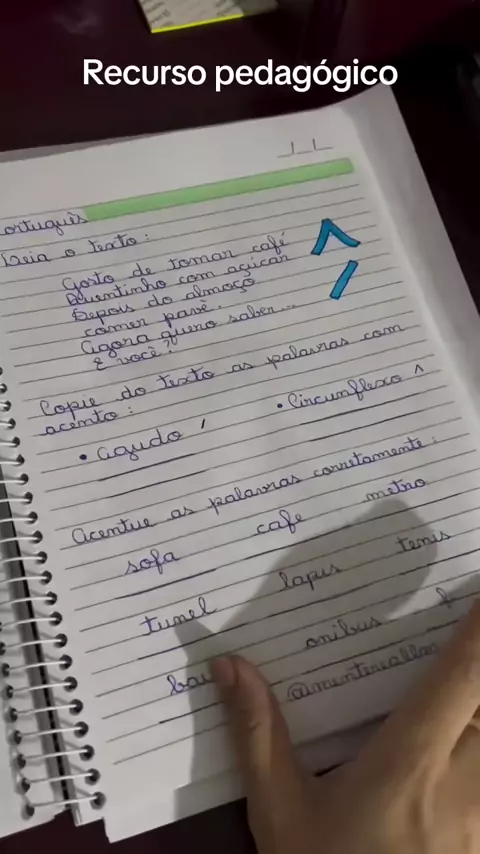 Recurso pedagógico
Leia o texto:
Gosto de tomar café
Quentinho com açúcar
Depois do almoço
comer pavê.
Agora quero saber...
E você?
Copie do texto as palavras com
acento:
• agudo ´ • Circunflexo ^
Acentue as palavras corretamente:
sofa cafe metro
tunel lapis tenis
onibus